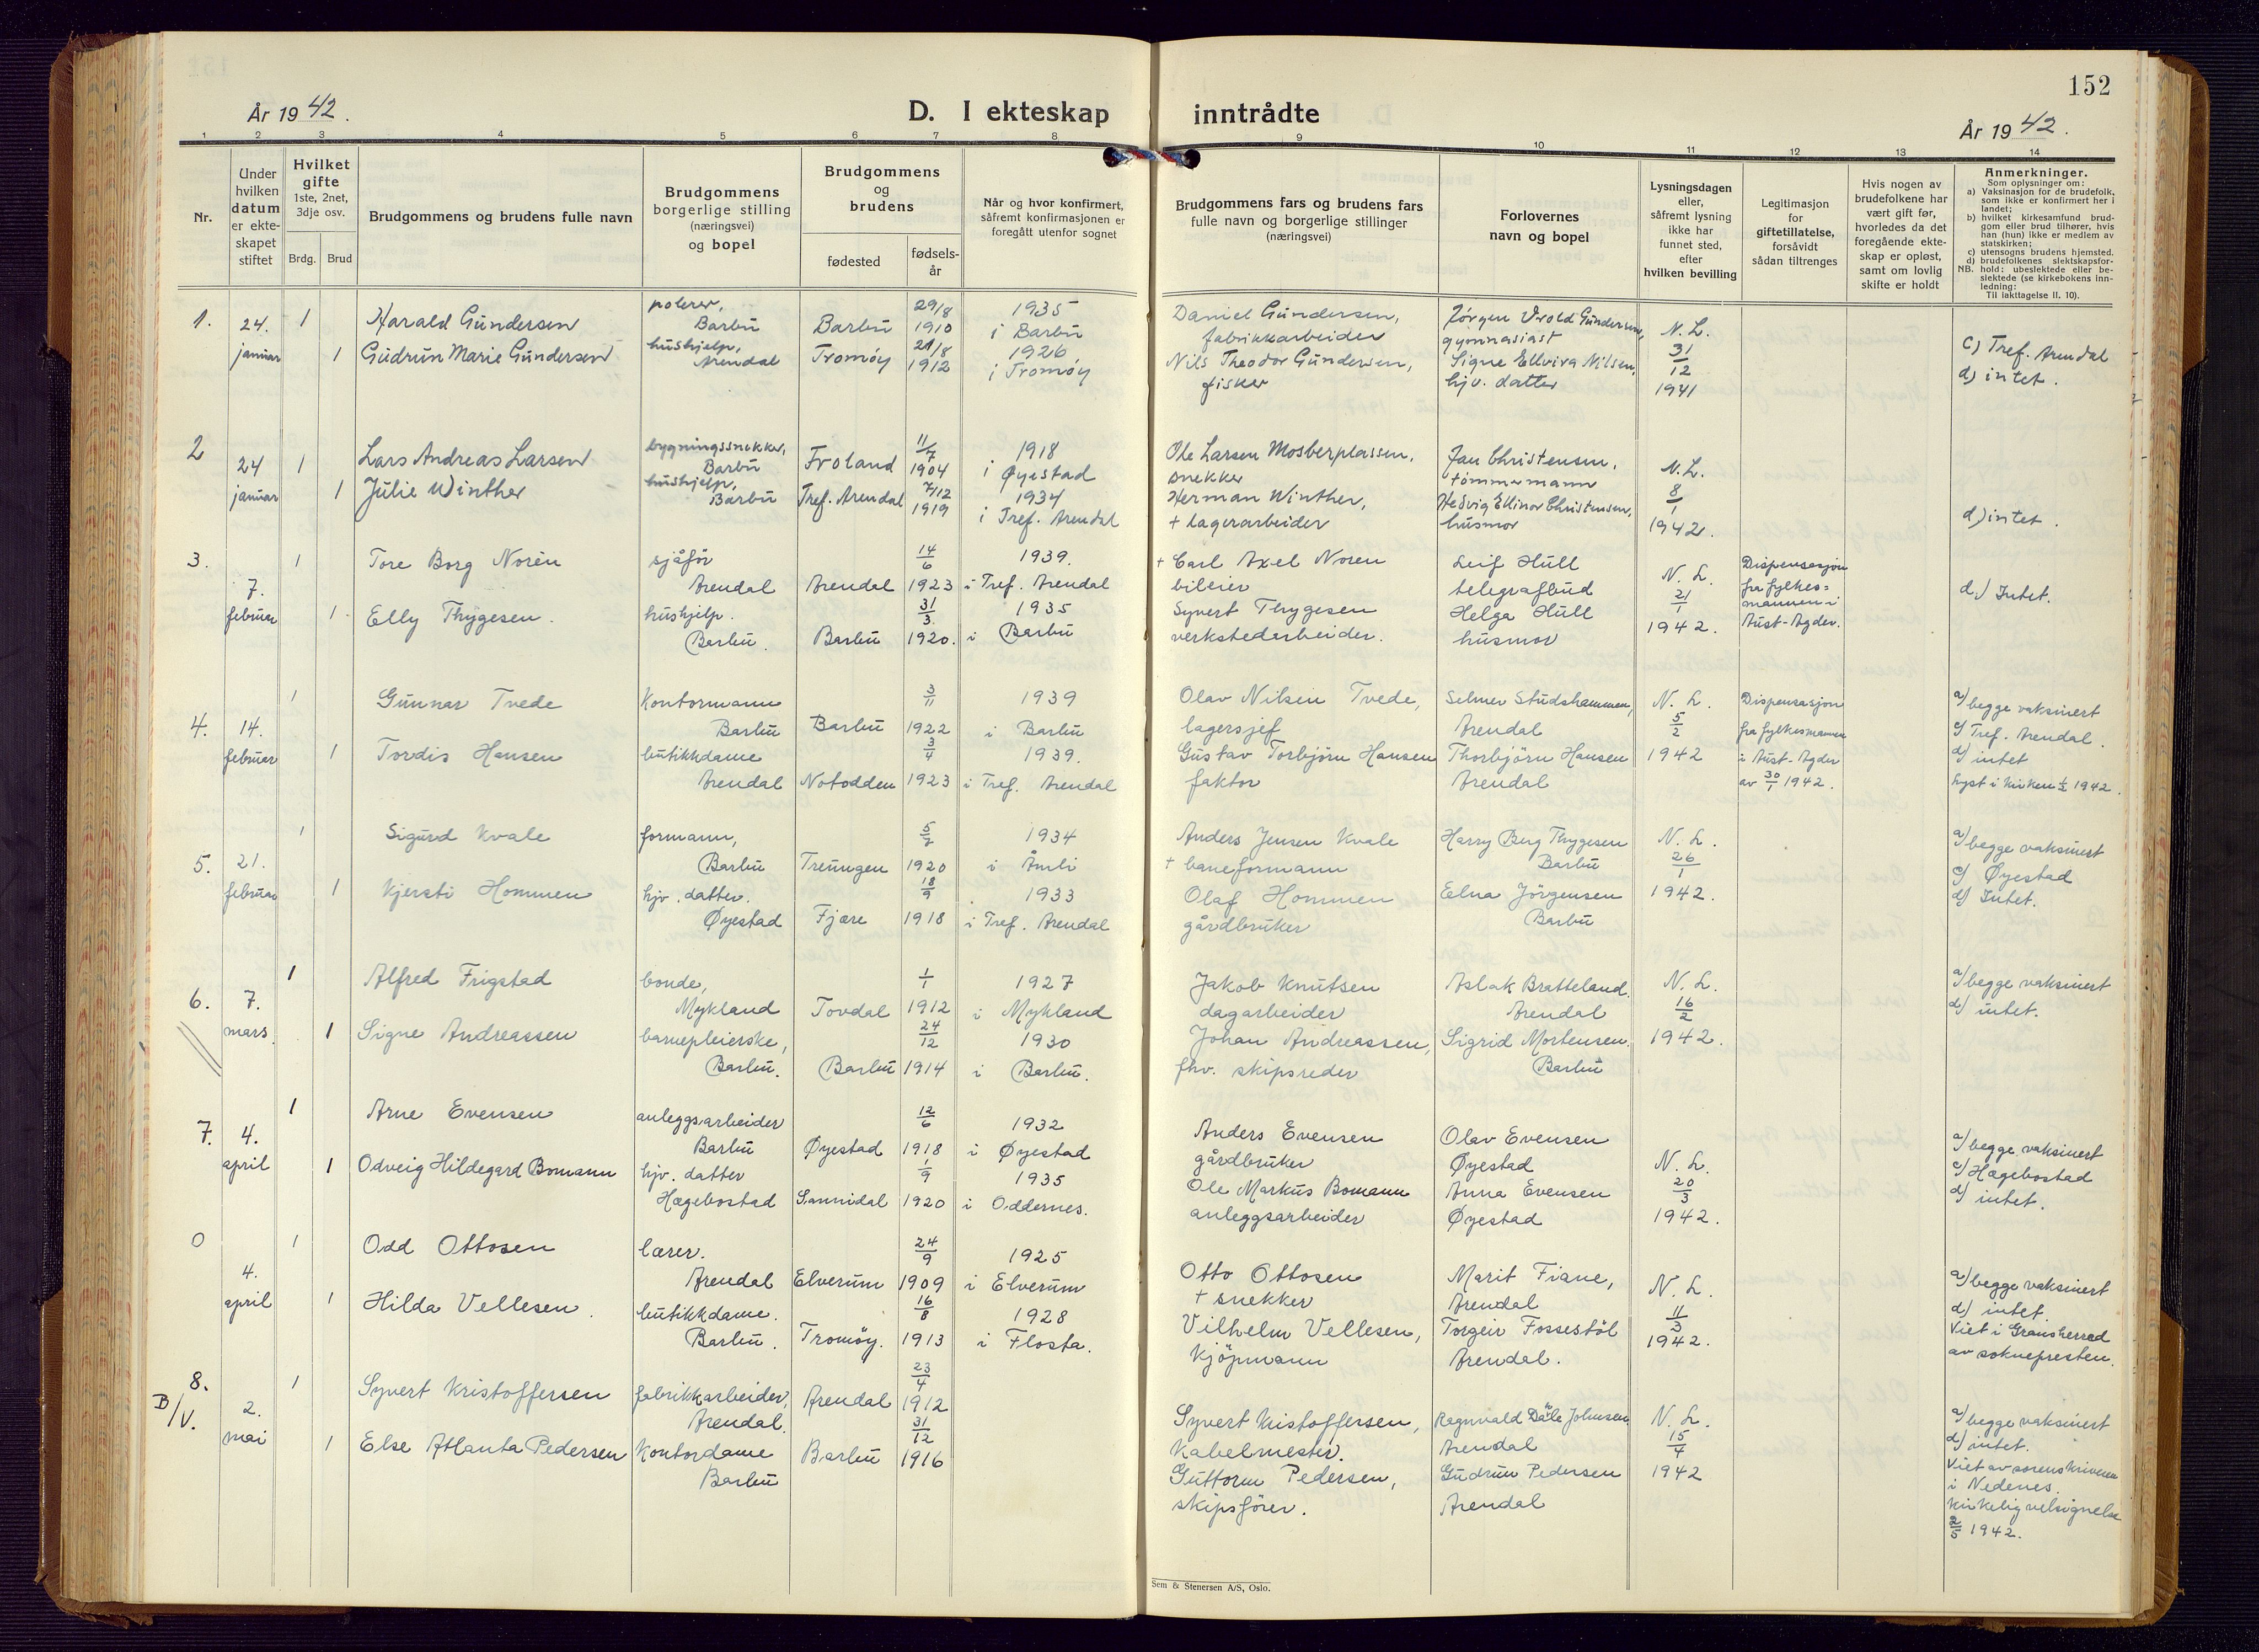 152
År 1942.
D. I ekteskap inntrådte
År 1942.
1 2 3 4 5 6 7 8 9 10 11 12 13 14
Nr.
Under hvilken datum er ekte-skapet stiftet
Hvilket gifte 1ste, 2net, 3dje osv.
Brdg. Brud
Brudgommens og brudens fulle navn
Brudgommens borgerlige stilling (næringsvei) og bopel
Brudgommens og brudens
fødested
fødsels-år
Når og hvor konfirmert, såfremt konfirmasjonen er foregått utenfor sognet
Brudgommens fars og brudens fars fulle navn og borgerlige stillinger (næringsvei)
Forlovernes navn og bopel
Lysningsdagen eller, såfremt lysning ikke har funnet sted, efter hvilken bevilling
Legitimasjon for giftetillatelse, forsåvidt sådan tiltrenges
Hvis nogen av brudefolkene har vært gift før, hvorledes da det foregående ekte-skap er opløst, samt om lovlig skifte er holdt
Anmerkninger.
Som oplysninger om:
a) Vaksinasjon for de brudefolk, som ikke er konfirmert her i landet;
b) hvilket kirkesamfund brud-gom eller brud tilhører, hvis han (hun) ikke er medlem av statskirken;
c) utensogns brudens hjemsted.
d) brudefolkenes slektskapsfor-
NB. hold: ubeslektede eller be-slektede (se kirkebokens inn-ledning:
Til iakttagelse II. 10).
1. 24. januar 1 Harald Gundersen polerer, Barbu Barbu 29/8 1910 1935 i Barbu
1 Gudrun Marie Gundersen hushjelp, Arendal Tromøy 21/8 1912 1926, i Tromøy
Daniel Gundersen, fabrikkarbeider
Nils Theodor Gundersen, fisker
Jørgen Vrold Gundersen, gymnasiast
Signe Ellvira Nilsen, hjv. datter
N. L. 31/12 1941
c) Tref. Arendal
d) intet.
2 24 januar 1 Lars Andreas Larsen bygningssnekker, Barbu Froland 11/7 1904 1918 i Øyestad
1 Julie Winther hushjelp, Barbu Tref. Arendal 7/12 1919 1934 i Tref. Arendal
Ole Larsen Mosberplassen, snekker
Herman Winther, + lagerarbeider
Jan Christensen, tømmermann
Hedvig Ellinor Christensen, husmor
N. L. 8/1 1942.
d) intet.
3. 7. februar 1 Tore Borg Norén sjåfør Arendal Arendal 14/6 1923 1939. i Tref. Arendal
1 Elly Thygesen. hushjelp. Barbu. Barbu 31/3 1920. 1935 i Barbu
+ Carl Axel Noren bileier
Syvert Thygesen verkstedarbeider.
Leif Hull telegrafbud
Helga Hull husmor
N. L. 21/1 1942.
Dispensasjon fra fylkes=mannen i Aust-Agder.
d.) Intet.
4. 14. februar 1 Gunnar Tvede Kontormann Barbu Barbu 3/11 1922 1939 i Barbu
1 Tordis Hansen butikkdame Arendal Notodden 3/4 1923 1939. i Tref. Arendal
Olav Nilsen Tvede, lagersjef
Gustav Torbjørn Hansen faktor
Selmer Studshammen, Arendal
Thorbjörn Hansen Arendal
N. L. 5/2 1942
Dispensasjon fra fylkesmannen i Aust-Agder av 30/1 1942.
a) begge vaksinert
c) Tref. Arendal.
d) intet
5. 21. februar 1 Sigurd Kvale formann, Barbu Treungen 5/2 1920 1934 i Åmli
1 Kjersti Hommen hjv. datter. Øyestad Fjære 18/9 1918 1933 i Tref. Arendal
Anders Jensen Kvale + baneformann
Olaf Hommen gårdbruker
Harry Berg Thygesen Barbu
Elna Jörgensen Barbu
N. L. 26/1 1942.
a) begge vaksinert
c) Øyestad
d) Intet.
6. 7. mars. 1 Alfred Frigstad bonde, Mykland Tovdal 1/1 1912 1927 i Mykland
1 Signe Andreassen barnepleierske, Barbu. Barbu 24/12 1914 1930 i Barbu.
Jakob Knutsen dagarbeider
Johan Andreassen, fhv. skipsreder
Aslak Bratteland. Arendal
Sigrid Mortensen. Barbu
N. L. 16/2 1942.
a) begge vaksinert
d) intet.
7. 4. april 1 Arne Evensen anleggsarbeider Barbu Øyestad 12/6 1918 1932 i Øyestad
1 Odveig Hildegard Bomann hjv. datter Hægebostad Sannidal 1/9 1920 1935 i Oddernes.
Anders Evensen gårdbruker
Ole Markus Bomann anleggsarbeider
Olav Evensen Øyestad
Anna Evensen Øyestad
N. L. 20/3 1942.
a) begge vaksinert
c) Hægebostad
d) intet.
0 4. april 1 Odd Ottosen lærer. Arendal Elverum 24/9 1909 1925 i Elverum
1 Hilda Vellesen. butikkdame. Barbu. Tromöy. 16/8 1913 1928 i Flosta.
Otto Ottosen + snekker
Vilhelm Vellesen, Kjöpmann
Marit Fiane, Arendal
Torgeir Fossestöl Arendal.
N. L. 11/3 1942.
a) begge vaksinert
d) intet.
Viet i Gransherred av sokneprestem.
8. B/V. 2. mai 1 Syvert Kristoffersen fabrikkarbeider, Arendal. Arendal 23/4 1912
1 Else Atlanta Pedersen Kontordame Barbu Barbu 31/12 1916
Syvert Kristoffersen, Kabelmester.
Guttorm Pedersen, skipsförer.
Ragnvald Däle Johnsen, Arendal
Gudrun Pedersen Arendal
N. L. 15/4 1942
a) begge vaksinert
d) intet.
Viet av sorenskriveren i Nedenes.
Kirkelig velsignelse 2/5 1942.
Sem & Stenersen A/S, Oslo.